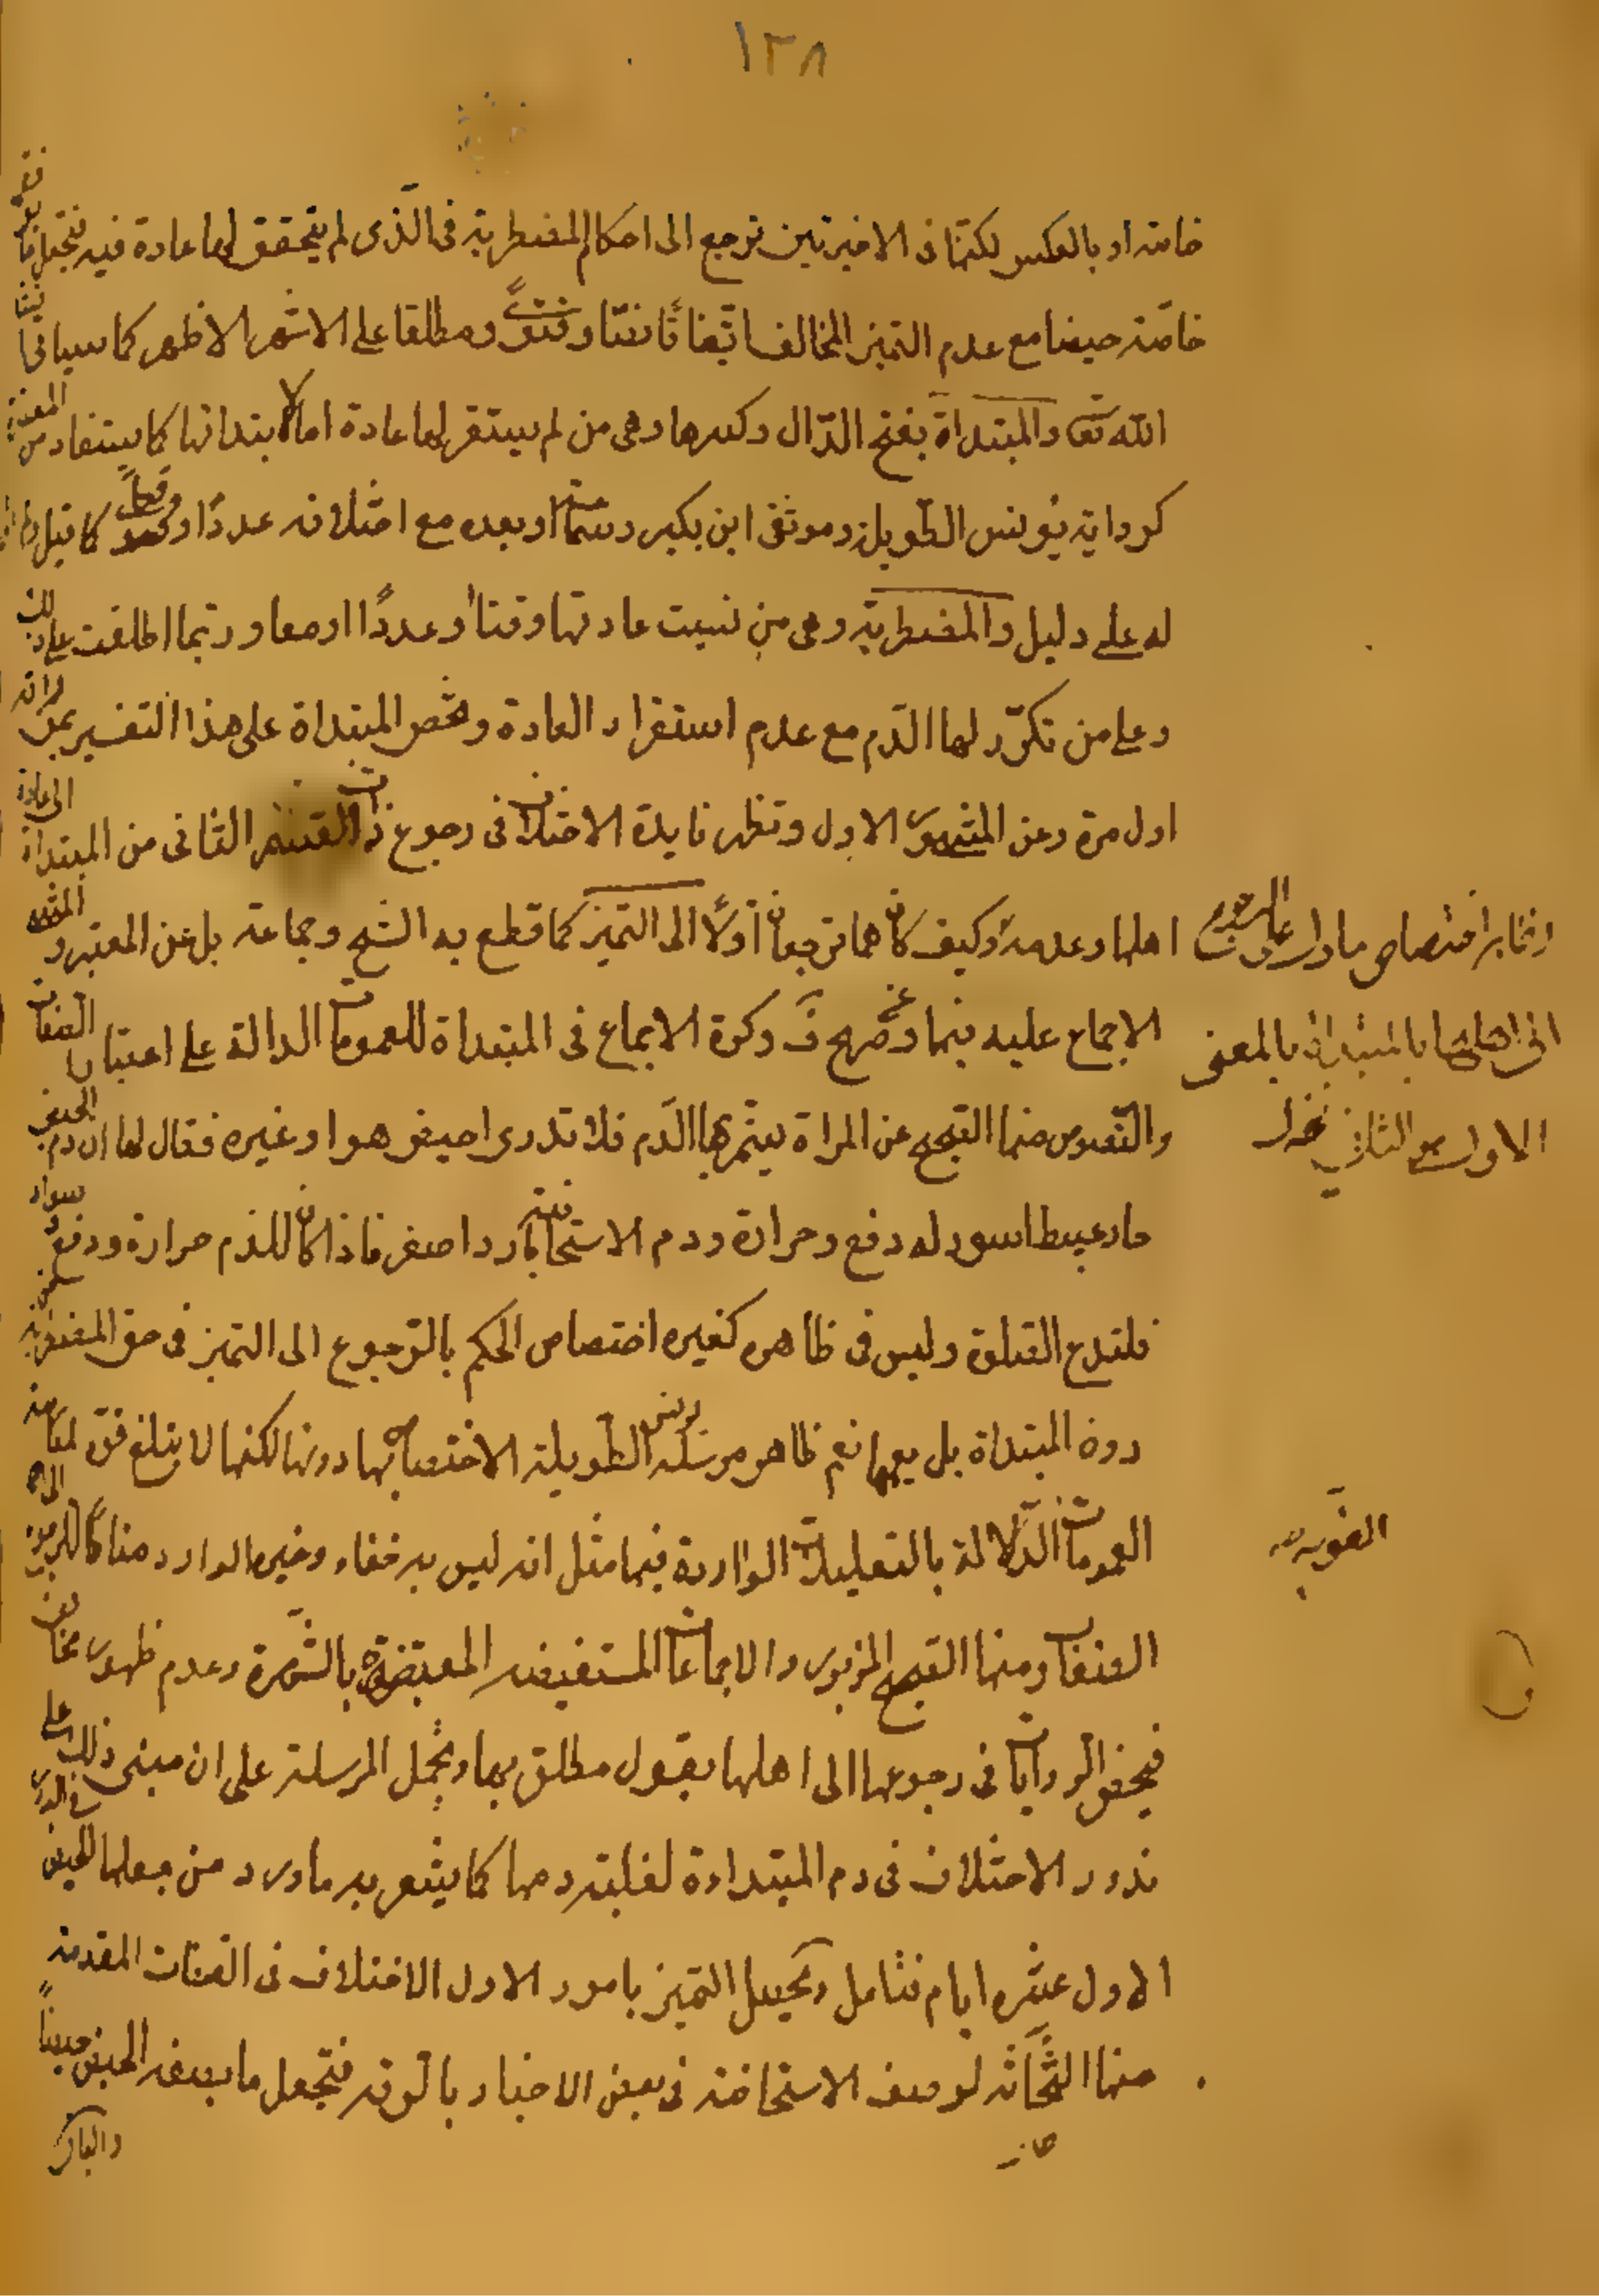 ١٣٨
خاصة او بالعكس لكنها فى الاخيرتين ترجع الى احكام المضطربة فى الذى لم يتحقق لها عادة فيه فتجعل ما
خاصة حيضا مع عدم التميز المخالف اتفاقا نصا وفتوى ومطلقا على الاشهر الاظهر كما سياتى
الله تعا والمبتداة بفتح الدال وكسرها وهى من لم يستقر لها عادة اما لابتدائها كما يستفاد من المعتبرة
كرواية يونس الطويلة وموثق ابن بكير وسماعة او بعده مع اختلافه عددا ووقتا كما قيل
له على دليل والمضطربة وهى من نسيت عادتها وقتا او عددا او معا وربما اطلقت على ذلك
وعلى من تكرر لها الدم مع عدم استقرار العادة وتخص المبتداة على هذا التفسير بمن راته
اول مرة وعن المشهور الاول وتظهر فايدة الاختلاف فى رجوع ذات القسم الثانى من المبتداة الى عادة
اهلها وعدمه وكيف كان هما ترجعان اولا الى التميز كما قطع به الشيخ وجماعة بل عن المعتبر و المنتهى
الاجماع عليه فيهما وعن صريح ف وكرة الاجماع فى المبتداة للعمومات الدالة على اعتبار الصفات
والنصوص منها الصحيح عن المراة يستمر بها الدم فلا تدرى احيض هو او غيره فقال لها ان دم الحيض
حار عبيط اسود له دفع وحرارة ودم الاستحاضة بارد اصفر فاذا كان للدم حرارة ودفع وسواد
فلتدع الصلوة وليس فى ظاهره كغيره اختصاص الحكم بالرجوع الى التميز فى حق المضطربة
دون المبتداة بل يعمها نعم ظاهر مرسلة يونس الطويلة الاختصاص بها دونها لكنها لا تبلغ قوة لمقاومة
العمومات الدالة بالتعليلات الواردة فيها مثل انه ليس به خفاء وغيره الوارد مناطا للرجوع الى
الصفات ومنها الصحيح المزبور والاجماعات المستفيضة المعتضدة بالشهرة وعدم ظهور مخالف
الروايات فى رجوعها الى اهلها بقول مطلق بها وتحمل المرسلة على ان مبنى ذلك على
ندور الاختلاف فى دم المبتداءة لغلبته دمها كما يشعر به ما ورد من جعلها الحيض فى الدور
الاول عشرة ايام فتامل ويحصل التميز بامور الاول الاختلاف فى الصفات المقدمة
منها الثخانه لوصف الاستحاضة فى بعض الاخبار بالرقة فتجعل ما بصفة الحيض حيضا
والباقى
وفى اختصاص ما دل على الرجوع
الى اهلها بالمبتداة بالمعنى
الاول او الثانى
القوية